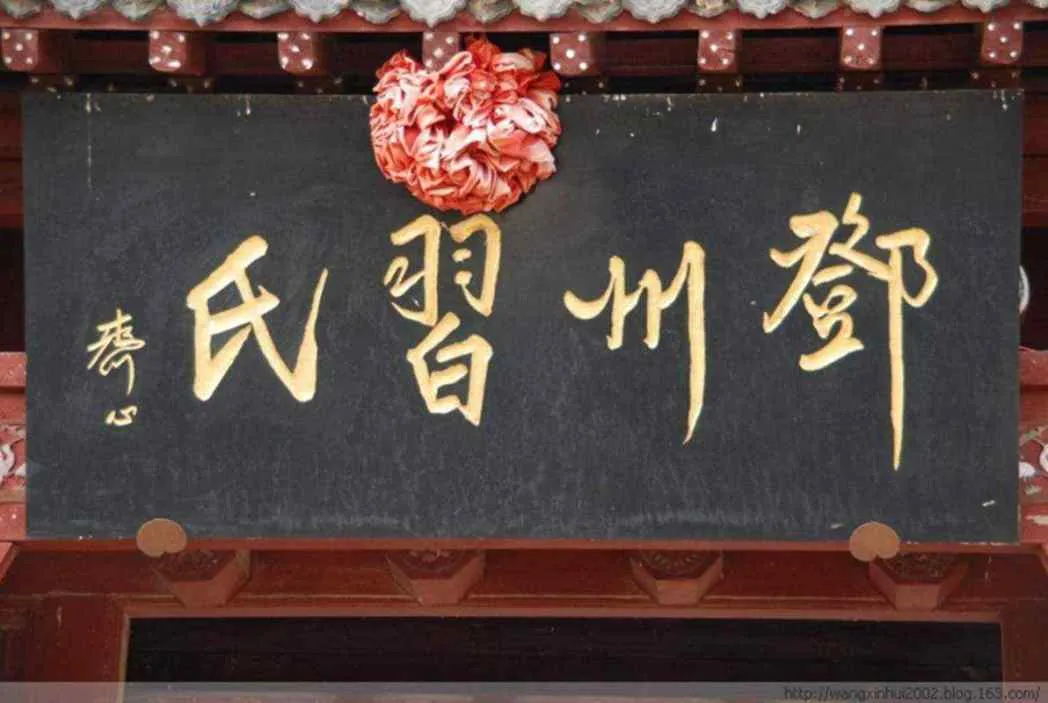 鄧州習氏
齊心
http://wangxinhui2002.blog.163.com/